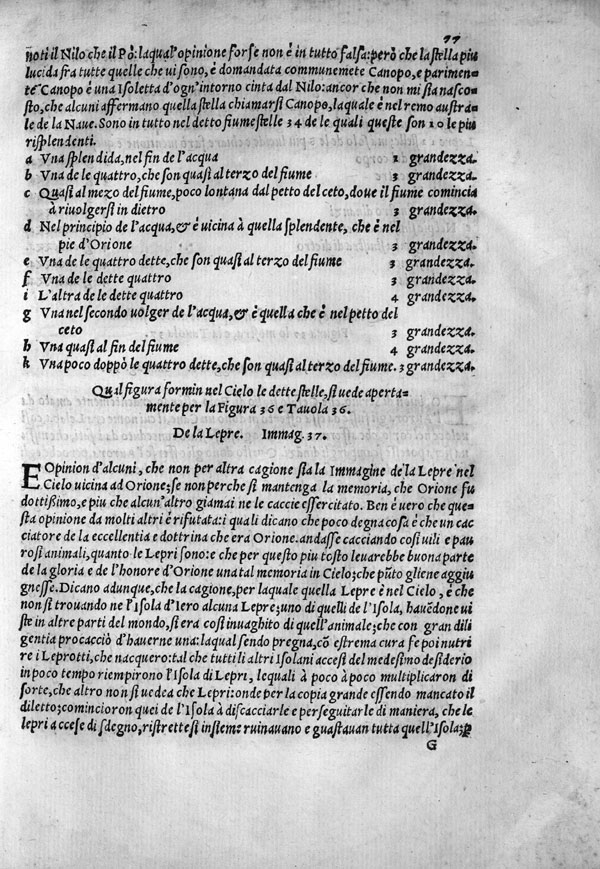 77
noti il Nilo che il Pò: laqual'opinione forse non è in tutto falsa: però che la stella piu
lucida fra tutte quelle che ui sono, è domandata communemẽte Canopo, e parimen=
te Canopo è una Isoletta d'ogn'intorno cinta dal Nilo: ancor che non mi sia nasco=
sto, che alcuni affermano quella stella chiamarsi Canopo, laquale è nel remo austra=
le de la Naue. Sono in tutto nel detto fiume stelle 34 de le quali queste son 10 le piu
risplendenti.
a Vna splendida, nel fin de l'acqua 1 grandezza.
b Vna de le quattro, che son quasi al terzo del fiume 3 grandezza.
c Quasi al mezo del fiume, poco lontana dal petto del ceto, doue il fiume comincia
à riuolgersi in dietro 3 grandezza.
d Nel principio de l'acqua, & è uicina à quella splendente, che è nel
pie d'Orione 3 grandezza.
e Vna de le quattro dette, che son quasi al terzo del fiume 3 grandezza.
f Vna de le dette quattro 3 grandezza.
i L'altra de le dette quattro 4 grandezza.
g Vna nel secondo uolger de l'acqua, & è quella che è nel petto del
ceto 3 grandezza.
h Vna quasi al fin del fiume 4 grandezza.
k Vna poco doppò le quattro dette, che son quasi al terzo del fiume. 3 grandezza.
Qual figura formin nel Cielo le dette stelle, si uede aperta=
mente per la Figura 36 e Tauola 36.
De la Lepre. Immag. 37.
E Opinion d'alcuni, che non per altra cagione sia la Immagine de la Lepre nel
Cielo uicina ad Orione; se non perche si mantenga la memoria, che Orione fu
dottißimo, e piu che alcun'altro giamai ne le caccie essercitato. Ben è uero che que=
sta opinione da molti altri è rifutata: i quali dicano che poco degna cosa è che un cac
ciatore de la eccellentia e dottrina che era Orione. andasse cacciando così uili e pau
rosi animali, quanto le Lepri sono: e che per questo piu tosto leuarebbe buona parte
de la gloria e de l'honore d'Orione una tal memoria in Cielo; che pũto gliene aggiu
gnesse. Dicano adunque, che la cagione, per laquale quella Lepre è nel Cielo, è che
non si trouando ne l'Isola d'Iero alcuna Lepre; uno di quelli de l'Isola, hauẽdone ui
ste in altre parti del mondo, si era così inuaghito di quell'animale; che con gran dili
gentia procacciò d'hauerne una: laqual sendo pregna, cõ estrema cura fe poi nutri
re i Leprotti, che nacquero: tal che tutti li altri Isolani accesi del medesimo desiderio
in poco tempo riempirono l'Isola di Lepri, lequali à poco à poco multiplicaron di
sorte, che altro non si uedea che Lepri: onde per la copia grande essendo mancato il
diletto; comincioron quei de l'Isola à discacciarle e perseguitarle di maniera, che le
lepri accese di sdegno, ristrettesi insieme ruinauano e guastauan tutta quell'Isola; ꝑ
G